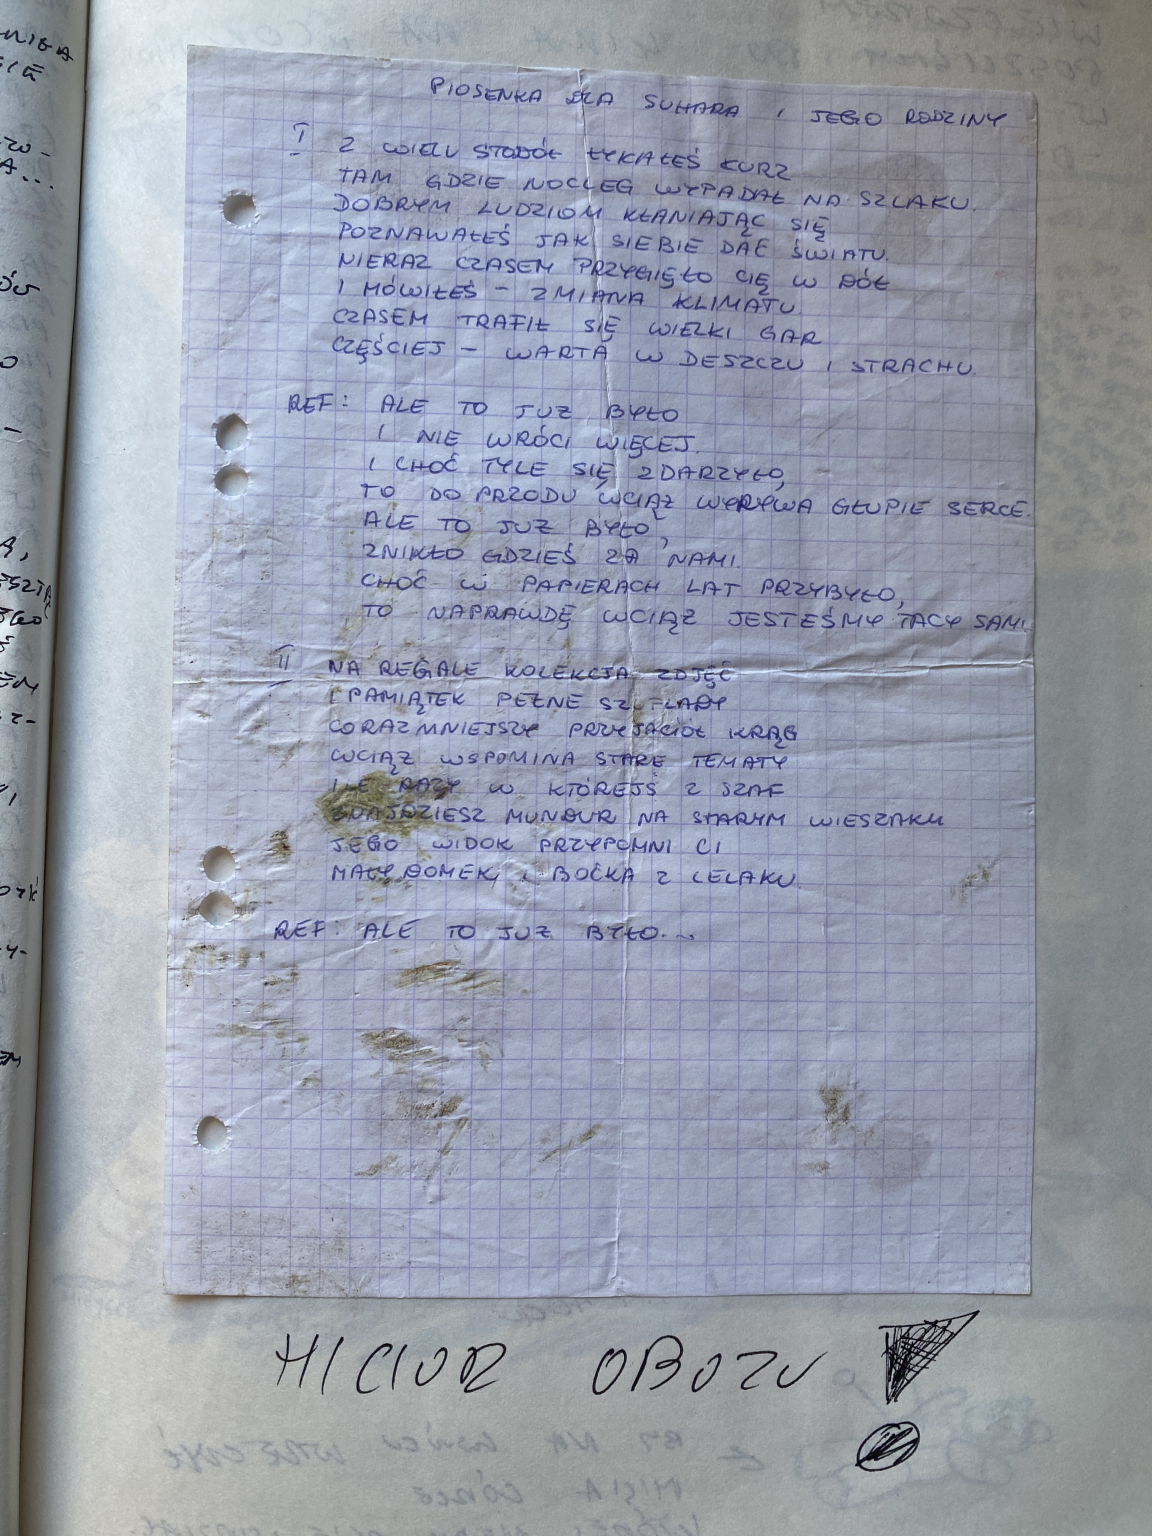 PIOSENKA DLA SUHARA I JEGO RODZINY
I Z WIELU STODÓŁ ŁYKAŁEŚ KURZ
TAM GDZIE NOCLEG WYPADAŁ NA SZLAKU.
DOBRYM LUDZIOM KŁANIAJĄC SIĘ
POZNAWAŁEŚ JAK SIEBIE DAĆ ŚWIATU.
NIERAZ CZASEM PRZYGIĘŁO CIĘ W DÓŁ
I MÓWIŁEŚ - ZMIANA KLIMATU.
CZASEM TRAFIŁ SIĘ WIELKI GAR
CZĘŚCIEJ - WARTA W DESZCZU I STRACHU.
REF: ALE TO JUŻ BYŁO
I NIE WRÓCI WIĘCEJ.
I CHOĆ TYLE SIĘ ZDARZYŁO,
TO DO PRZODU WCIĄŻ WYRYWA GŁUPIE SERCE.
ALE TO JUŻ BYŁO,
ZNIKŁO GDZIEŚ ZA NAMI.
CHOĆ W PAPIERACH LAT PRZYBYŁO,
TO NAPRAWDĘ WCIĄŻ JESTEŚMY TACY SAMI.
II NA REGALE KOLEKCJA ZDJĘĆ
I PAMIĄTEK PEŁNE SZUFLADY
CORAZ MNIEJSZY PRZYJACIÓŁ KRĄG
WCIĄŻ WSPOMINA STARE TEMATY
ILE RAZY W KTÓREJŚ Z SZAF
ZNAJDZIESZ MUNDUR NA STARYM WIESZAKU
JEGO WIDOK PRZYPOMNI CI
MAŁY DOMEK I BOĆKA Z LELAKU.
REF: ALE TO JUŻ BYŁO...
HICIOR OBOZU !